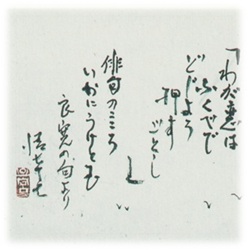 「わが恋は
ふくべで
どじよう
押す
ごとし
」
俳句のこころ
いかにうけとむ
良寛の句より